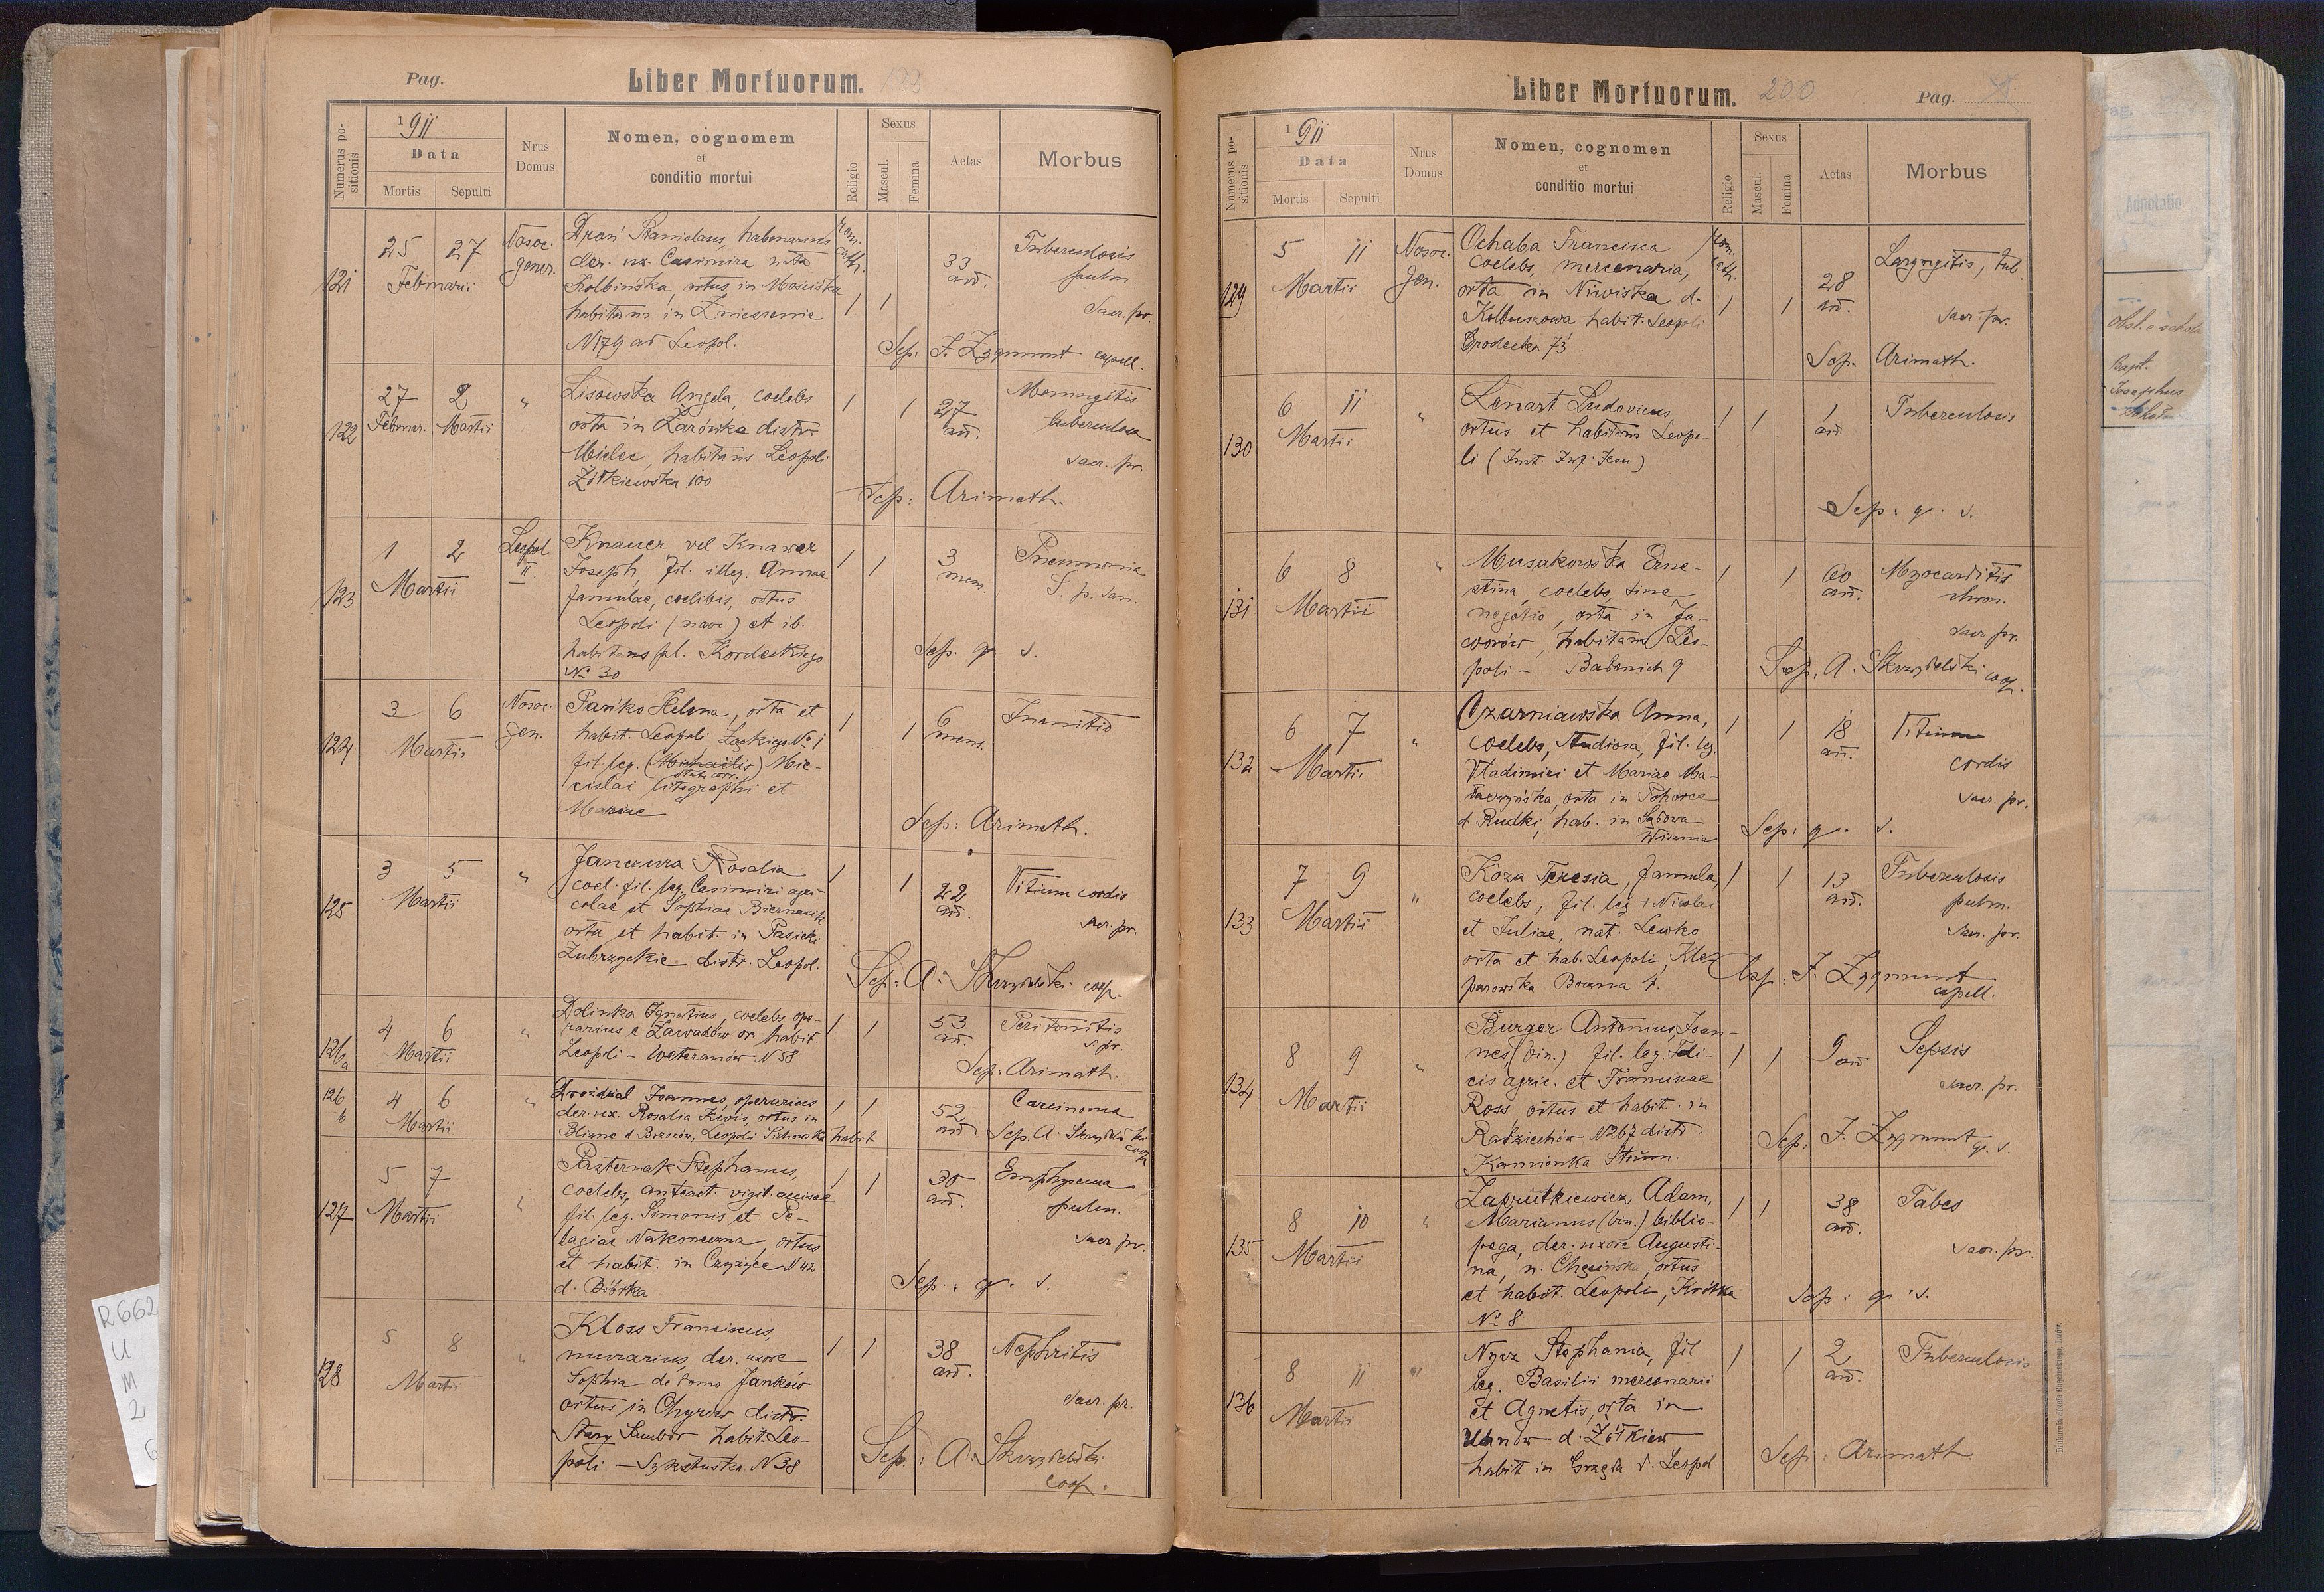 Pag.
Liber Mortuorum.
Numerus positionis
1911
Data
Mortis
Sepulti
Nrus Domus
Nomen, cognomem
et
conditio mortui
Religio
Sexus
Mascul.
Femina
Aetas
Morbus
121
25 27
Februarii
Nosoc.
gener.
Droń Stanislaus, habenarius
der. ux. Casimira nata
Kolbińska, ortus in Mościska
habitans in Zniesienie
N179 ad Leopol.
rom.
cath.
1 1
33
an.
Tuberculosis
pulm.
Sacr. pr.
Sep: F. Zygmunt capell.
122
27 2
Februar. Martii
"
Lisowska Angela, coelebs
orta in Żarówka distr.
Mielec, habitans Leopoli
Żółkiewska 100
1 1
27
an.
Meningitis
tuberculosa
sacr. pr.
Sep: Arimath.
123
1 2
Martii
Leopol
II.
Knauer vel Knawer
Joseph, fil. illeg. Annae
famulae, coelibis, ortus
Leopoli (noso) et ib.
habitans pl. Kordeckiego
No 30
1 1
3
mens.
Pneumonia
S. p. san.
Sep. q. s.
124
3 6
Martii
Nosoc.
gen.
Pańko Helena, orta et
habit. Leopoli Łąckiego No 1
fil. leg. (Michaëlis) Mie-
cislai litographi et
Mariae
1 1
6
mens.
Inanitio
Sep: Arimath.
125
3 5
Martii
"
Janczura Rosalia
coel. fil. leg. Casimiri agri-
colae et Sophiae Biernacik
orta et habit. in Pasieki
Zubrzyckie distr. Leopol.
1 1
22
an.
Vitium cordis
sacr. pr.
Sep: A. Skrzydelski coop.
126
a
4 6
Martii
"
Dolinka Ignatius, coelebs ope-
rarius e Zawadów or. habit.
Leopoli - Weteranów N 58
1 1
53
an.
Peritonitis
s. pr.
Sep: Arimath.
126
b
4 6
Martii
"
Drozdział Joannes, operarius
der. ux. Rosalia Kiwis, ortus in
habit
1 1
52
an.
Carcinoma
Sep. A. Skrzydelski
coop
127
5 7
Martii
"
Pasternak Stephanus,
coelebs, anteact. vigil. accisae
fil. leg. Simonis et Pe-
lagiae Nakoneczna, ortus
et habit. in Czyżyce N 42
d. Bóbrka
1 1
30
an.
Emphysema
pulm.
sacr. pr.
Sep: q. s.
128
5 8
Martii
"
Kloss Franciscus,
murarius, der. uxore
Sophia de domo Janków
ortus in Chyrów distr.
Stary Sambor habit. Leo-
poli - Sykstuska N 38
1 1
38
an.
Nephritis
sacr. pr.
Sep: A. Skrzydelski
coop.
Liber Mortuorum. 200
Pag.
Numerus positionis
1911
Data
Mortis
Sepulti
Nrus Domus
Nomen, cognomen
et
conditio mortui
Religio
Sexus
Mascul.
Femina
Aetas
Morbus
129
5 11
Martii
Nosoc.
gen.
Ochaba Francisca
coelebs, mercenaria,
orta in Niwiska d.
Kolbuszowa habit. Leopoli
Grodecka 73
rom.
cath.
1 1
28
an.
Laryngitis, tub.
sacr. pr.
Sep. Arimath.
130
6 11
Martii
"
Lenart Ludovicus,
ortus et habitans Leopo-
li (Inst. Inf. Jesu)
1 1
1
an.
Tuberculosis
Sep: q. s.
131
6 8
Martii
"
Musakowska Erne-
stina, coelebs, sine
negotio, orta in Ja-
worów, habitans Leo-
poli - 9
1 1
60
an.
Myocarditis
chron.
sacr. pr.
Sep. A. Skrzydelski coop.
132
6 7
Martii
"
Czarniawska Anna,
coelebs, studiosa, fil. leg.
Vladimiri et Mariae Ma-
orta in
d. Rudki, hab. in Sądowa
Wisznia
1 1
18
an.
Vitium
cordis
sacr. pr.
Sep: q. s.
133
7 9
Martii
"
Koza Teresia, famula,
coelebs, fil. leg + Nicolai
et Juliae, nat. Lewko
orta et hab. Leopoli, Kle-
parowska Boczna 4.
1 1
13
an.
Tuberculosis
pulm.
sacr. pr.
Sep: F. Zygmunt
capell.
134
8 9
Martii
"
Burger Antonius, Joan-
nes (bin.) fil. leg.
agric. et Franciscae
Ross, ortus et habit. in
Radziechów N 267 distr.
Kamionka Strum.
1 1
9
an
Sepsis
sacr. pr.
Sep: F. Zygmunt q. s.
135
8 10
Martii
"
Zaprutkiewicz Adam,
Marianus (bin.) biblio-
pega, der. uxore Augusti-
na, n. Chęcińska, ortus
et habit. Leopoli, Krótka
No 8
1 1
38
an.
Tabes
sacr. pr.
Sep: q. s.
136
8 11
Martii
"
Nycz Stephania, fil
leg. Basilii mercenarii
et Agnetis, orta in
Uhnów d. Żółkiew
habit in Grzęda d. Leopol.
1 1
2
an.
Tuberculosis
Sep: Arimath.
Adnotatio
R 662
U
M
2
6